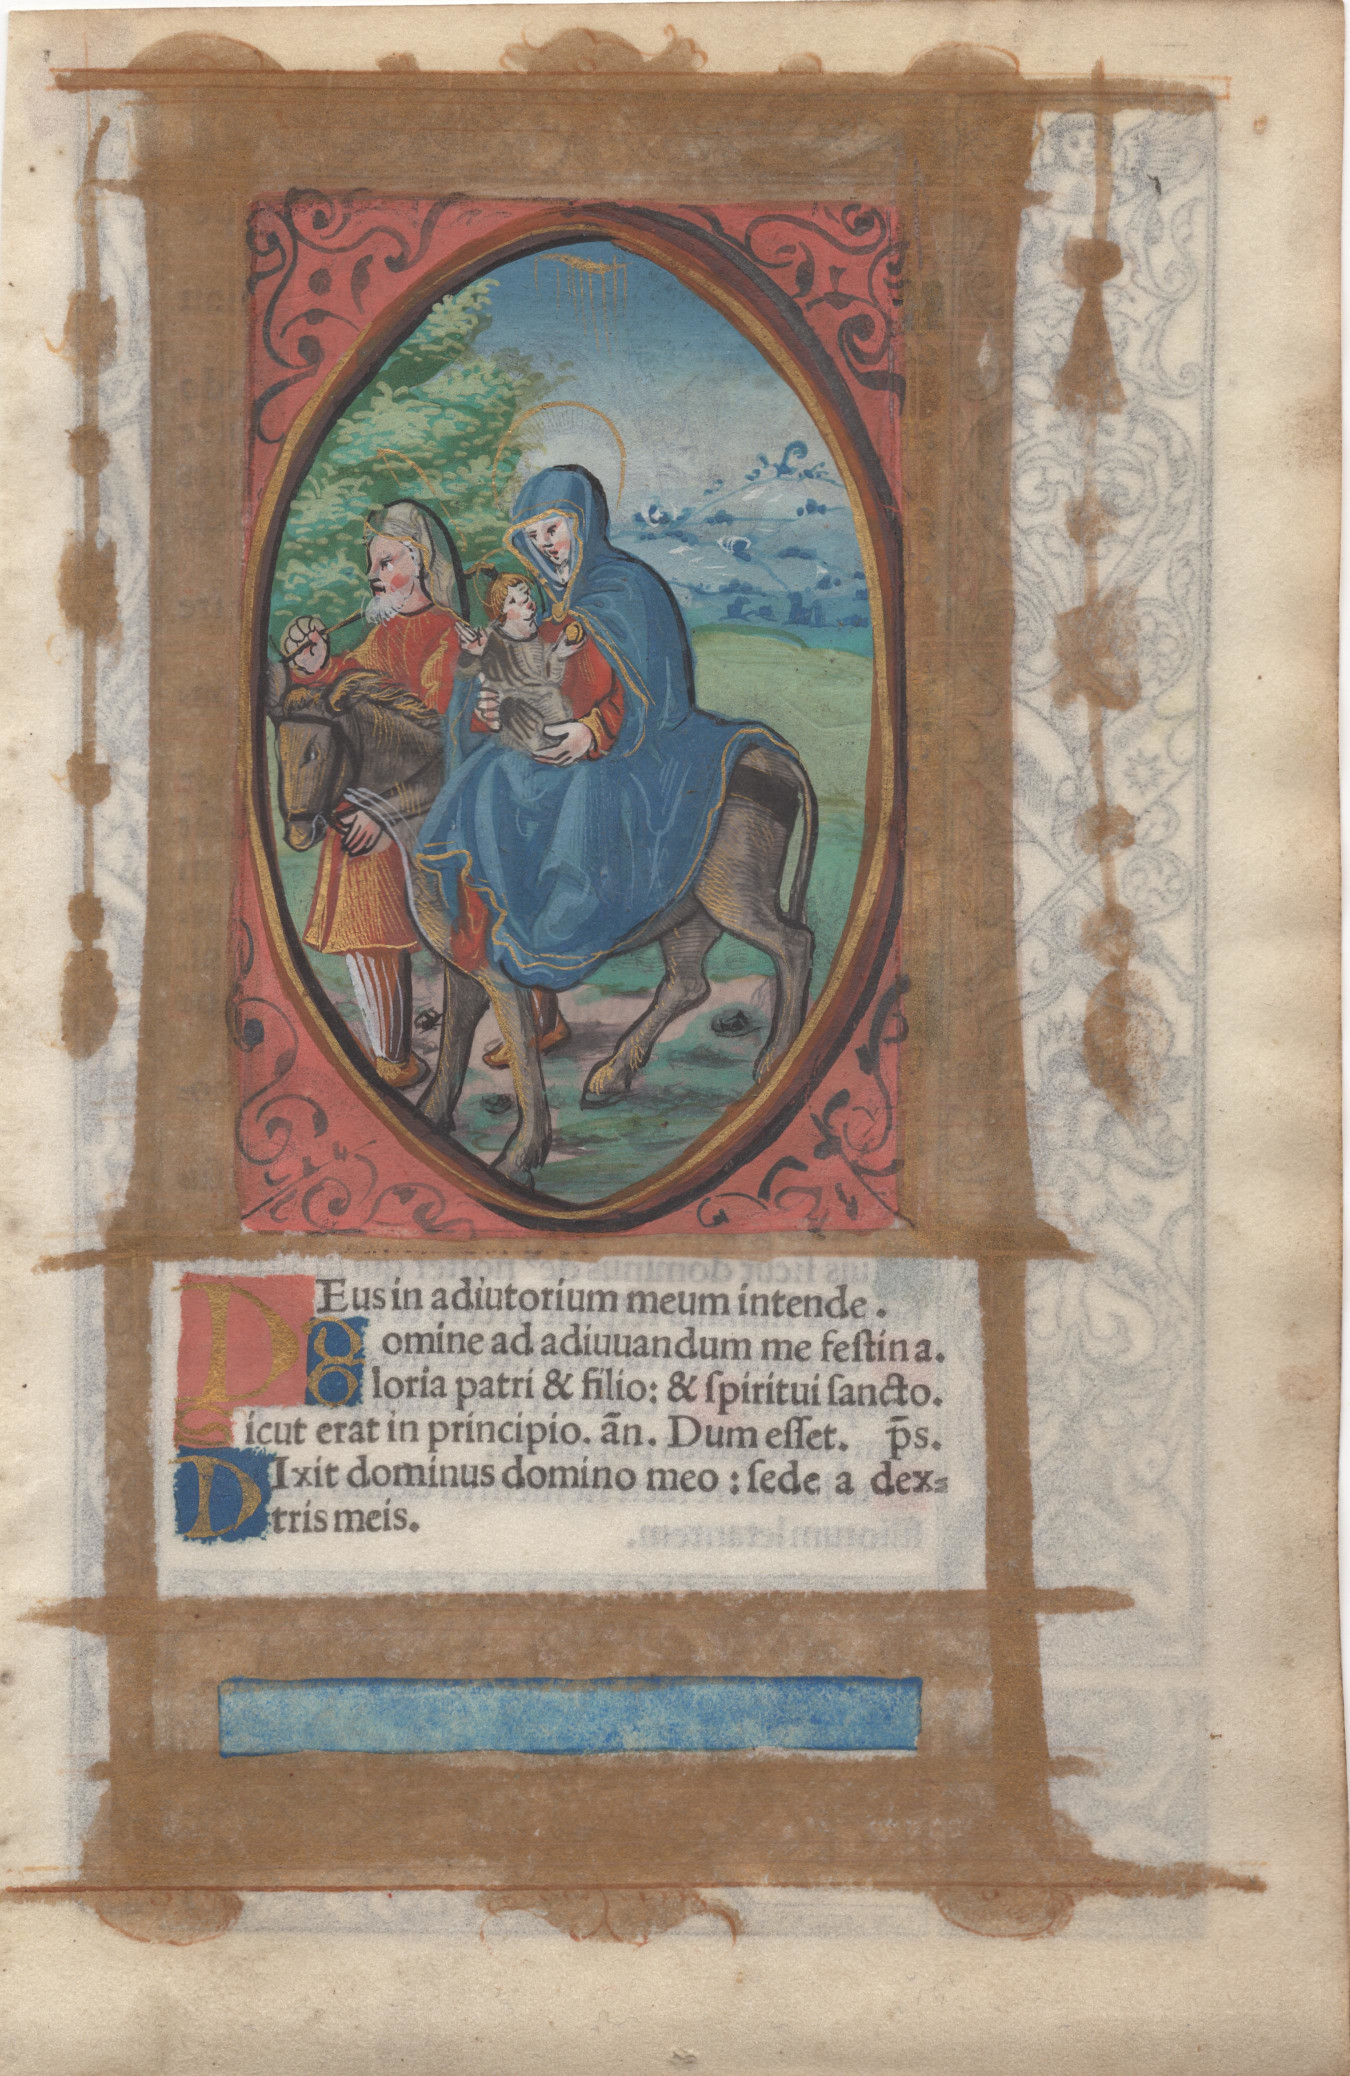 DEus in adiutorium meum intende.
Domine ad adiuuandum me feſtina.
Gloria patri & filio: & ſpiritui ſancto.
Sicut erat in principio. ãn. Dum eſſet. p̄s.
DIxit dominus domino meo: ſede a dex⸗
tris meis.